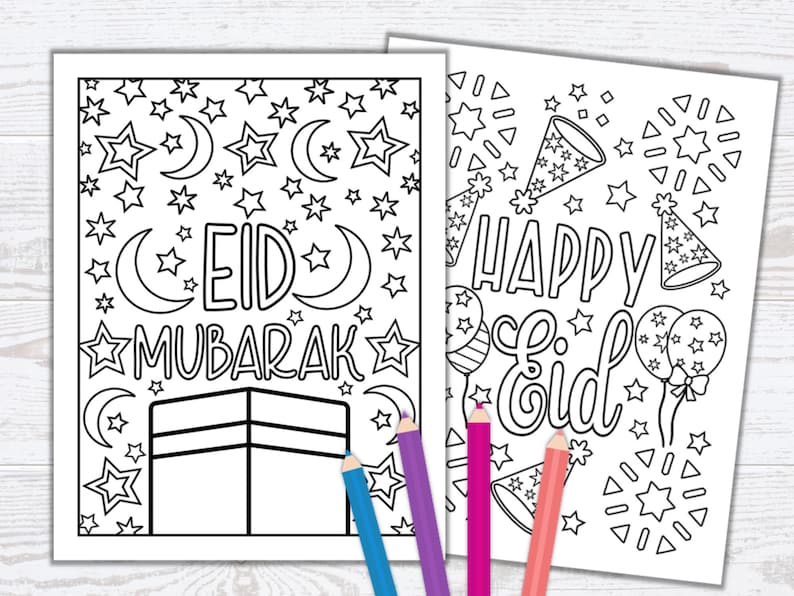 EID
MUBARAK
HAPPY
Eid